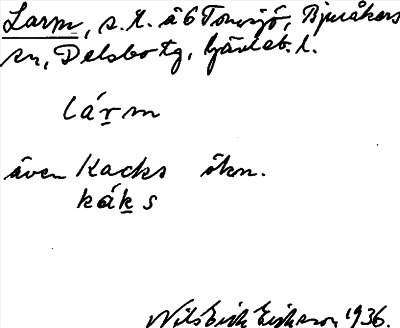 Larm, s. k. å 6 Tomsjö, Bjuråkers
sn, Delsbo tg, Gävleb. l.
lárm
även Kacks ökn.
káks
Nils Erik Eriksson, 1936.